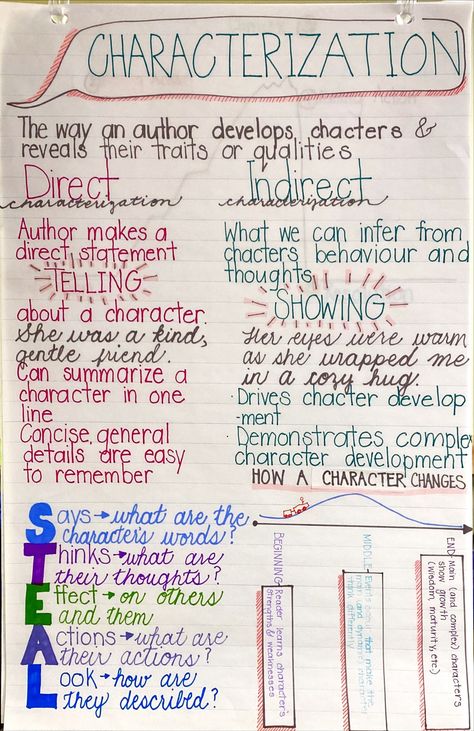 CHARACTERIZATION
The way an author develops, chacters &
reveals their traits or qualities
Direct
characterization
Author makes a
direct statement
TELLING
about a character.
She was a kind,
gentle friend.
Can summarize a
character in one
line
Concise, general
details are easy
to remember
Indirect
characterization
What we can infer from
chacters behaviour and
thoughts
SHOWING
Her eyes were warm
as she wrapped me
in a cozy hug.
· Drives chacter develop
-ment
· Demonstrates complex
character development
Says → what are the
character's words?
Thinks → what are
their thoughts?
Effect → on others
and them
Actions → what are
their actions?
Look → how are
they described?
HOW A CHARACTER CHANGES
BEGINNING: Reader learns character's
strengths & weaknesses
MIDDLE: Events occur that make the
main and dynamic character
think differently
END: Main (and complex) characters
show growth
(wisdom, maturity, etc.)